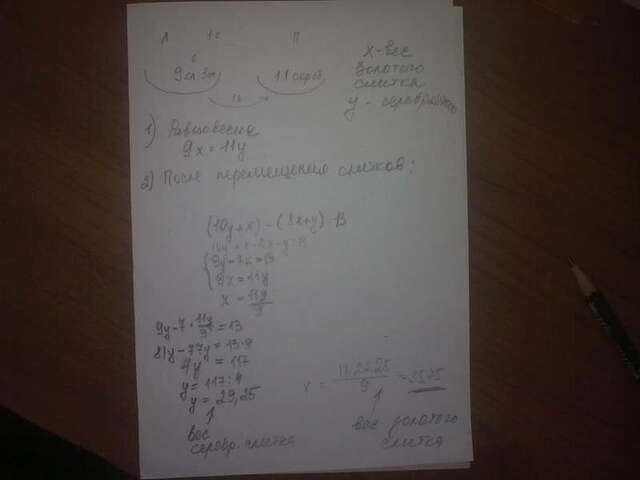 Л 1с П
9сл Зол 11 сереб
1с
x - вес
золотого
слитка
y - серебряного
1) Равновесие
9x = 11y
2) После перемещения слитков:
(10y + x) - (8x + y) = 13
10y + x - 8x - y = 13
9y - 7x = 13
9x = 11y
x = 11y/9
9y - 7 · 11y/9 = 13
81y - 77y = 13·9
4y = 117
y = 117:4
y = 29,25
вес
серебр. слитка
x = 11·29.25/9 = 35.75
вес золотого
слитка